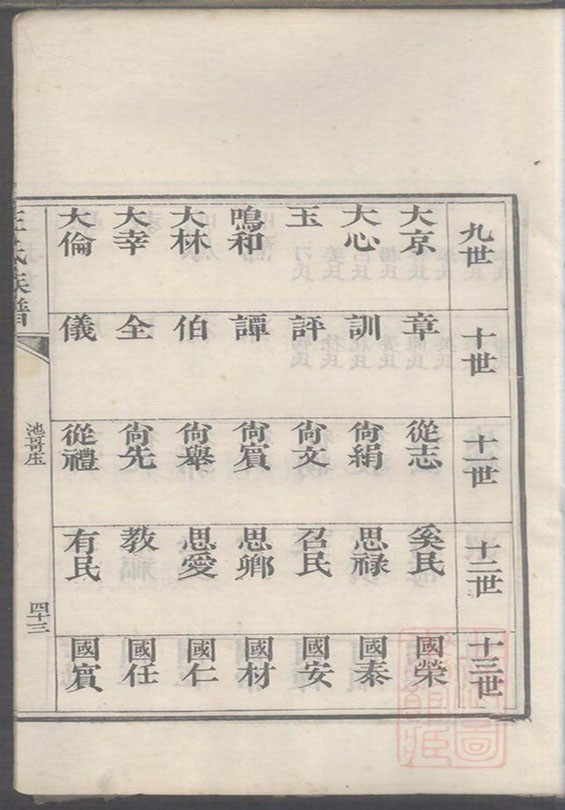 九世 十世 十一世 十二世 十三世
大京 章 從志 奚民 國榮
大心 訓 尙絹 思祿 國泰
玉 評 尙文 召民 國安
鳴和 譚 尙賔 思鄉 國材
大林 伯 尙舉 思愛 國仁
大幸 全 尙先 教 國任
大倫 儀 從禮 有民 國賔
王氏族譜
池哥庄
四十三